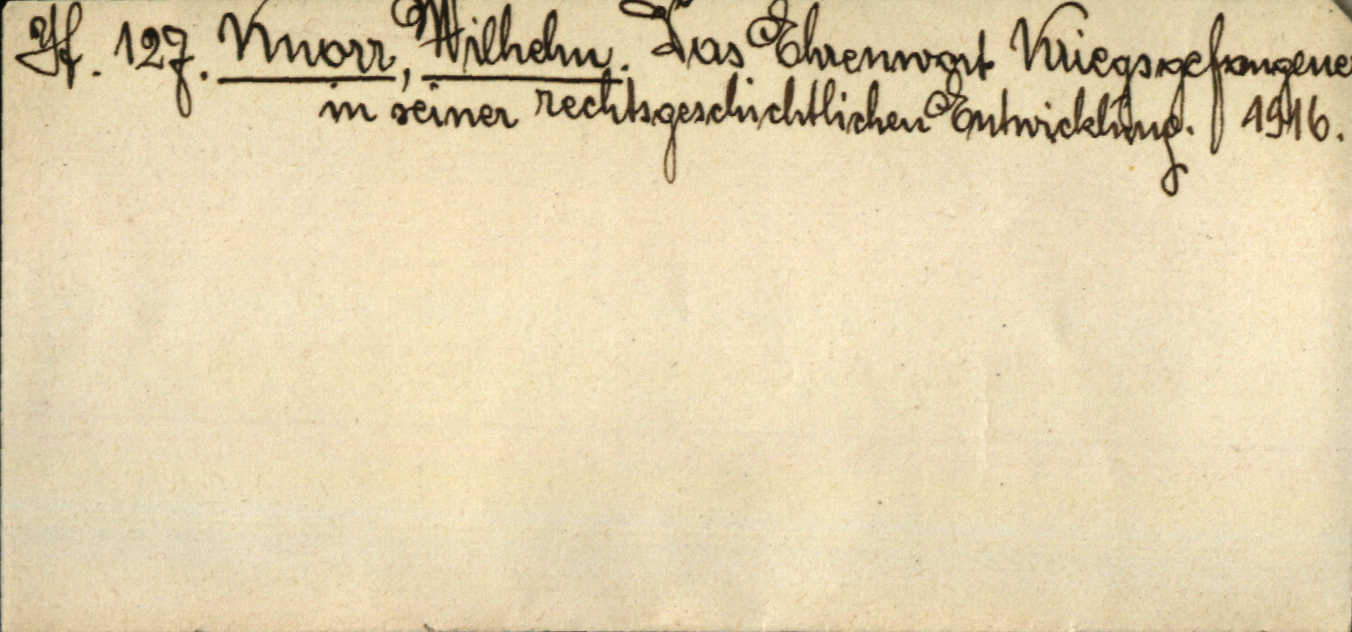 Hf. 127. Knorr, Wilhelm. Das Ehrenwort Kriegsgefangene
in seiner rechtsgeschichtlichen Entwicklung. 1916.